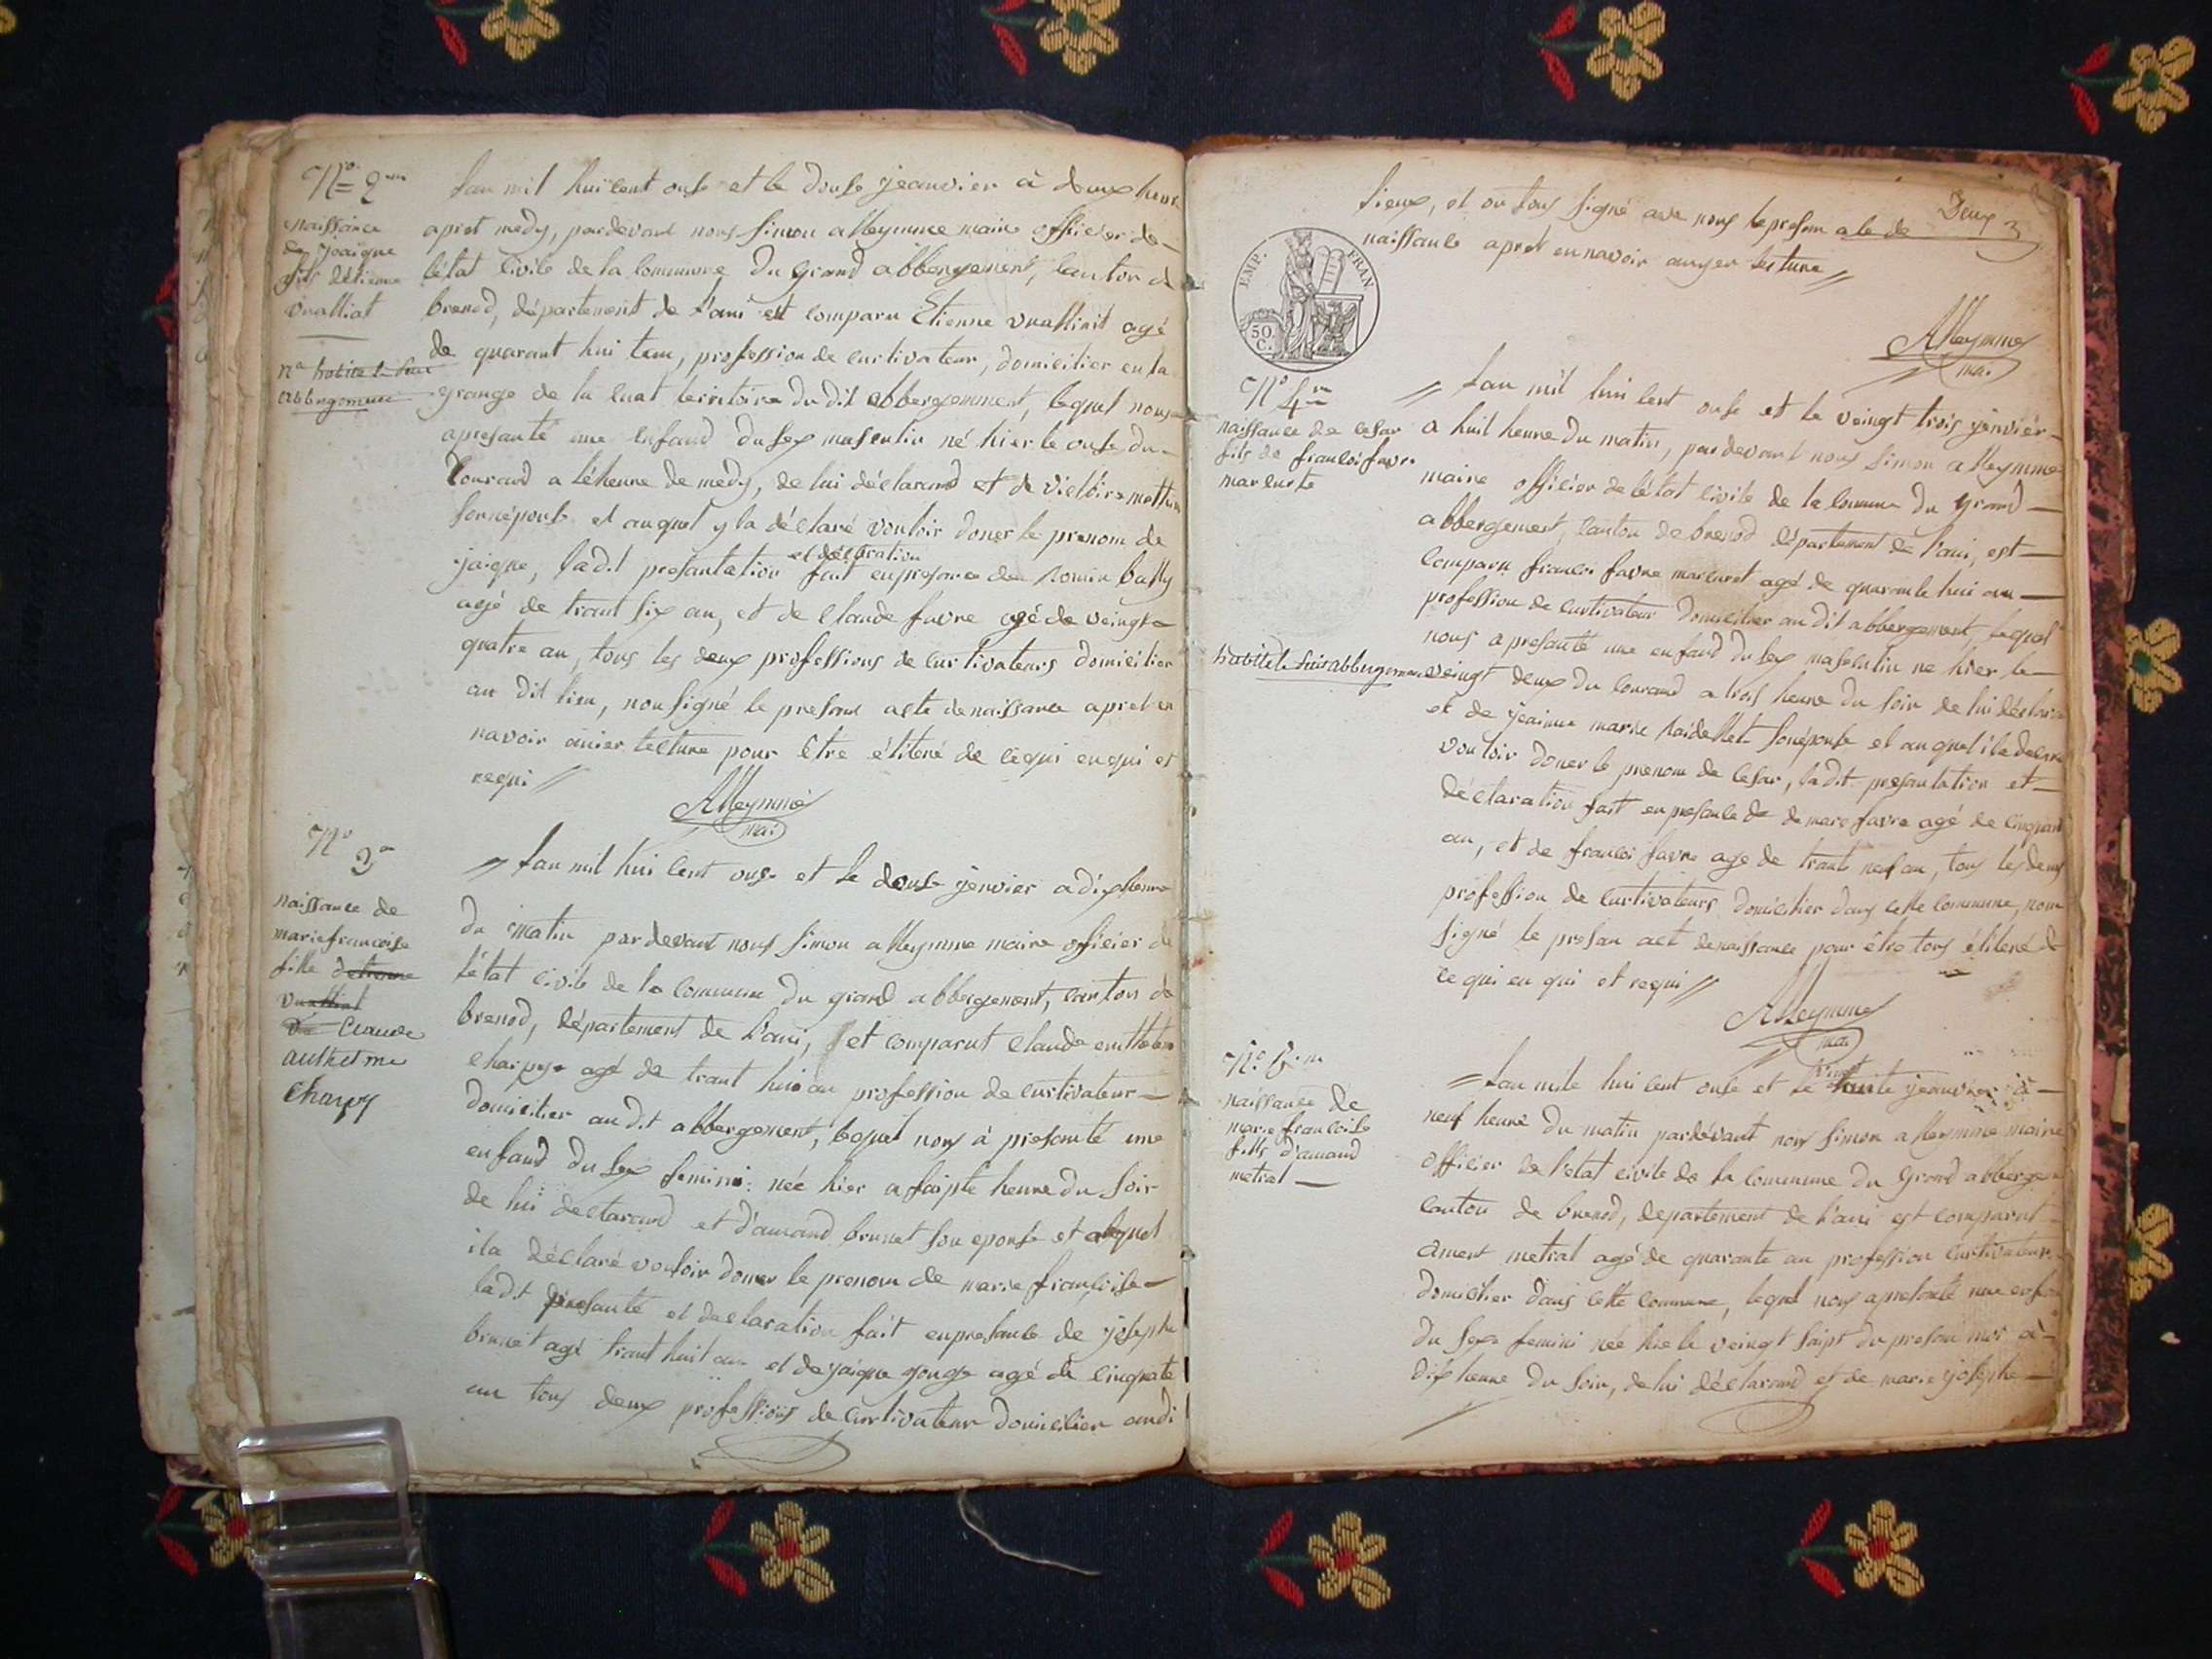 N° 2em
naissance
de Joaique
fils détienne
vualliat
na habite le petit
abbergement
Lan mil hui cent onse et le donse jeanvier à deux heure
apret medy, pardevant nous Simon alleymme maire officier de
létat civile de la commune du grand abbergement, canton de
brenod, département de l'ain est comparu Etienne vualliat agé
de quarant hui tem, profession de curtivateur, domicilier en la
grange de la luat teiritoire du dit abbergemment, lequel nous
apresanté une enfand du sex masculin né hier le onse du
Courand a l'éheure de medy, de lui déclarand et de victoire mathieu
sonnépouse et auquel y la déclaré vouloir doner le prenom de
jaique, ladit presantation et déclaration fait enpresance de Romin bally
agé de trant six an, et de Claude favre agé de veingt
quatre an, tous les deux professions de curtivateurs domicilier
au dit lieu, non signé le presant acte de naissance apret en
navoir anier lecture pour être étilené de cequi enqui et
requi //
Alleymme
mai
N° 3e
naissance de
marie francoise
fille detienne
vualliat
de Claude
anthelme
Charpy
// Lan mil hui cent onse et le donse jenvier a dix heure
du matin par devant nous Simon alleymme maire officier de
létat civile de la commune du grand abbergement, canton de
brenod, département de l'ain, et comparut Claude
charpy agé de trant hui an profession de curtivateur
domicilier audit abbergement, lequel nous à presanté une
enfand du sex feminin née hier a saipte heure du soir
de lui declarand et d'amand brunet son epouse et alequel
ila déclaré vouloir doner le prenom de marie francoise
ladit presanté et declaration fait enpresance de joseph
brunet agé trant huit an et de jaique gouge agé de cinquate
an tous deux professions de curtivateur domicilier audi
Deux 3
lieux, et on tous signé ave nous le presen acte de
naissance apret en navoir auyer lecture //
EMP. FRAN
50 C.
Alleymme
mai
N° 4em
naissance de cesar
fils de francoi favre
marcurte
habite le petit abbergement
// Lan mil hui cent onse et le veingt trois jenvier
a huit heure du matin, par devant nous Simon alleymme
maire officier de létat civile de la commune du grand
abbergement, canton de brenod département de l'ain, est
comparu francoi favre marcuret agé de quarante hui an
profession de curtivateur domicilier au dit abbergement, lequel
nous a presanté une enfand du sex masculin ne hier le
veingt deux du courand a trois heure du soir de lui déclaran
et de jeainne marie Raidellet sonépouse et auquel ila declaré
vouloir doner le prenom de Cesar, ladit presantation et
déclaration fait en presance de de marc favre agé de cinquant
an, et de francoi favre age de trante neuf an, tous les deux
profession de curtivateurs domicilier dans cette commune, non
signé le presan act denaissance pour être tous étilené de
ce qui en qui et requi //
Alleymme
mai
N° 5em
naissance de
marie francoise
fills d'amand
metral
// Lan mile hui cent onse et le vingt huite jeanvier à
neuf heure du matin pardévant nous Simon alleymme maire
officier de l'etat civile de la commune du Grand abbergem
canton de brenod, departement de l'ain est comparut
ament metral agé de quarante an profession curtivateur
domicilier dans cette commune, lequel nous apresanté une enfan
du sexe feminin née hie le veingt saipt du presan moi à
dix heure du soir, de lui déclarand et de marie josephe